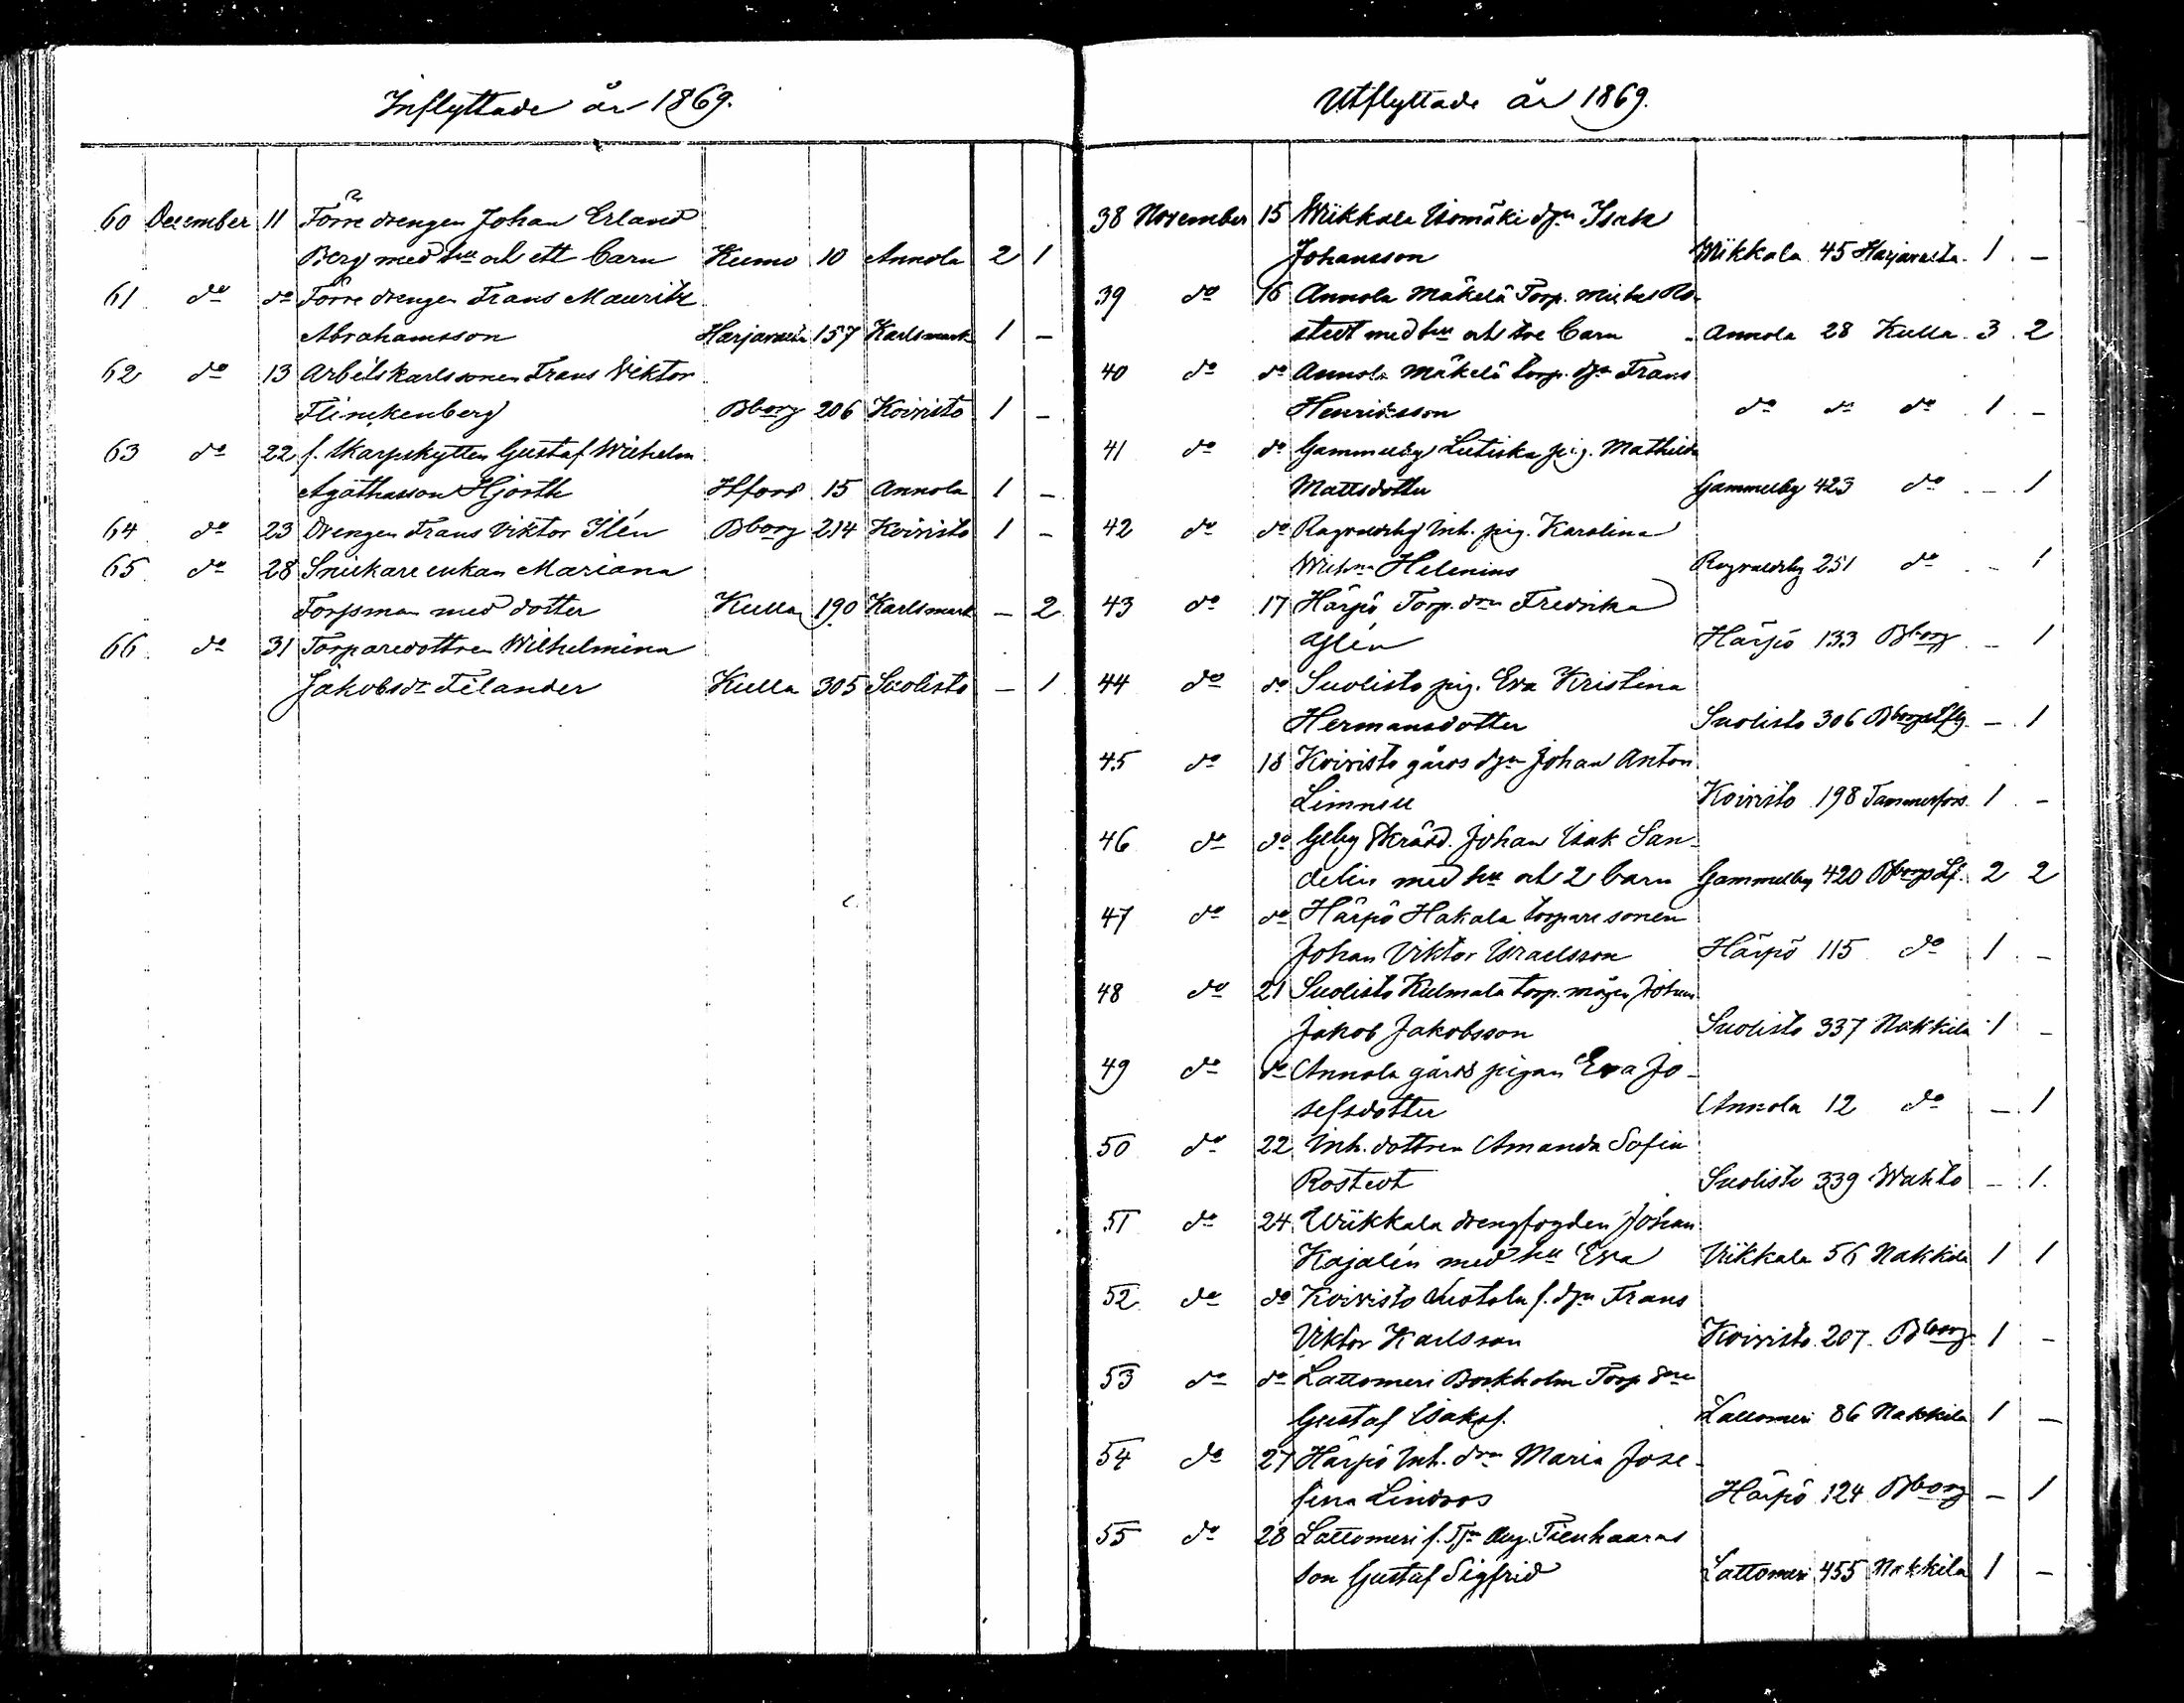 Inflyttade år 1869.
60 December 11 Förre drengen Johan Erland
Berg med hu och ett barn Kumo 10 Annola 2 1
61 do do Förre drengen Frans Mauritz
Abrahamsson Harjavalta 157 Karlsmark 1 –
62 do 13 Arbetskarlssonen Frans Viktor
Flinckenberg Bborg 206 Koivisto 1 –
63 do 22 f. Skarpskytten Gustaf Wilhelm
Agathasson Hjorth Hfors 15 Annola 1 –
64 do 23 Drengen Frans Viktor Ilén Bborg 214 Koivisto 1 –
65 do 28 Snickare enkan Mariana
Torpsman med dotter Kulla 190 Karlsmark – 2
66 do 31 Torparedottren Wilhelmina
Jakobsdr Filander Kulla 305 Suolisto – 1
Utflyttade år 1869.
38 November 15 Wiikkala Isomäki dgn Isak
Johansson Wiikkala 45 Harjavalta 1 –
39 do 16 Annola Mäkelä Torp. Mickel Ro-
stedt med hu och tre barn Annola 28 Kulla 3 2
40 do do Annola Mäkelä torp. dgn Frans
Henriksson do do do 1 –
41 do do Gammelby Lutiska pig. Mathilda
Mattsdotter Gammelby 423 do – 1
42 do do Ragvaldsby Inh. pig. Karolina
Wilhna Helenius Ragvaldsby 251 do – 1
43 do 17 Härpö Torp. drn Fredrika
Ylén Härpö 133 Bborg – 1
44 do do Suolisto pig. Eva Kristina
Hermansdotter Suolisto 306 – 1
45 do 18 Koivisto gårds dgn Johan Anton
Limnell Koivisto 198 Tammerfors 1 –
46 do do Glby Skrädd. Johan Isak San-
delin med hu och 2 barn Gammelby 420 Bborgs Lf. 2 2
47 do do Härpö Hakala torpare sonen
Johan Viktor Israelsson Härpö 115 do 1 –
48 do 21 Suolisto Kulmala torp. mågen Johan
Jakob Jakobsson Suolisto 337 Nakkila 1 –
49 do do Annola gårds pigan Eva Jo-
sefsdotter Annola 12 do – 1
50 do 22 Inh. dottren Amanda Sofia
Rostedt Suolisto 339 Wahto – 1.
51 do 24 Wiikkala drengfogden Johan
Kajalén med hu Eva Viikkala 56 Nakkila 1 1
52 do do Koivisto f. dgn Frans
Viktor Karlsson Koivisto 207 Bborg 1 –
53 do do Lattomeri Bockholm Torp sne
Gustaf Isaksf. Lattomeri 86 Nakkila 1 –
54 do 27 Härpö Inh. drn Maria Jose-
fina Lindroos Härpö 124 Bborg – 1
55 do 28 Lattomeri f. Aug. Tienhaaras
son Gustaf Sigfrid Lattomeri 455 Nakkila 1 –